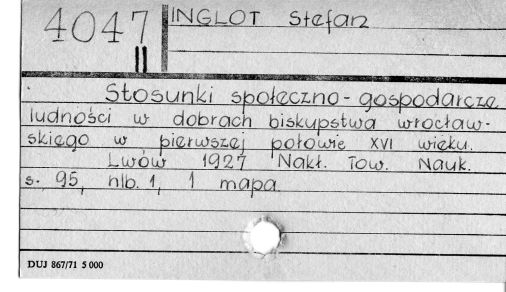 4047 INGLOT Stefan
II
Stosunki społeczno-gospodarcze
ludności w dobrach biskupstwa wrocław-
skiego w pierwszej połowie XVI wieku.
Lwów 1927 Nakł. Tow. Nauk.
s. 95, nlb. 1, 1 mapa
DUJ 867/71 5 000